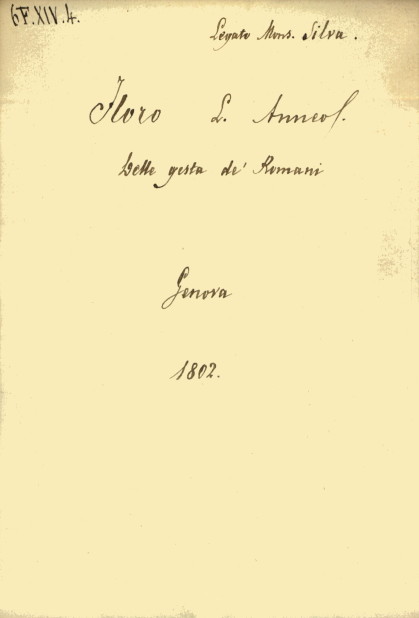 6F.XIV.4.
Legato Mons. Silva.
Floro L. Anneo.
Delle gesta de' Romani
Genova
1802.